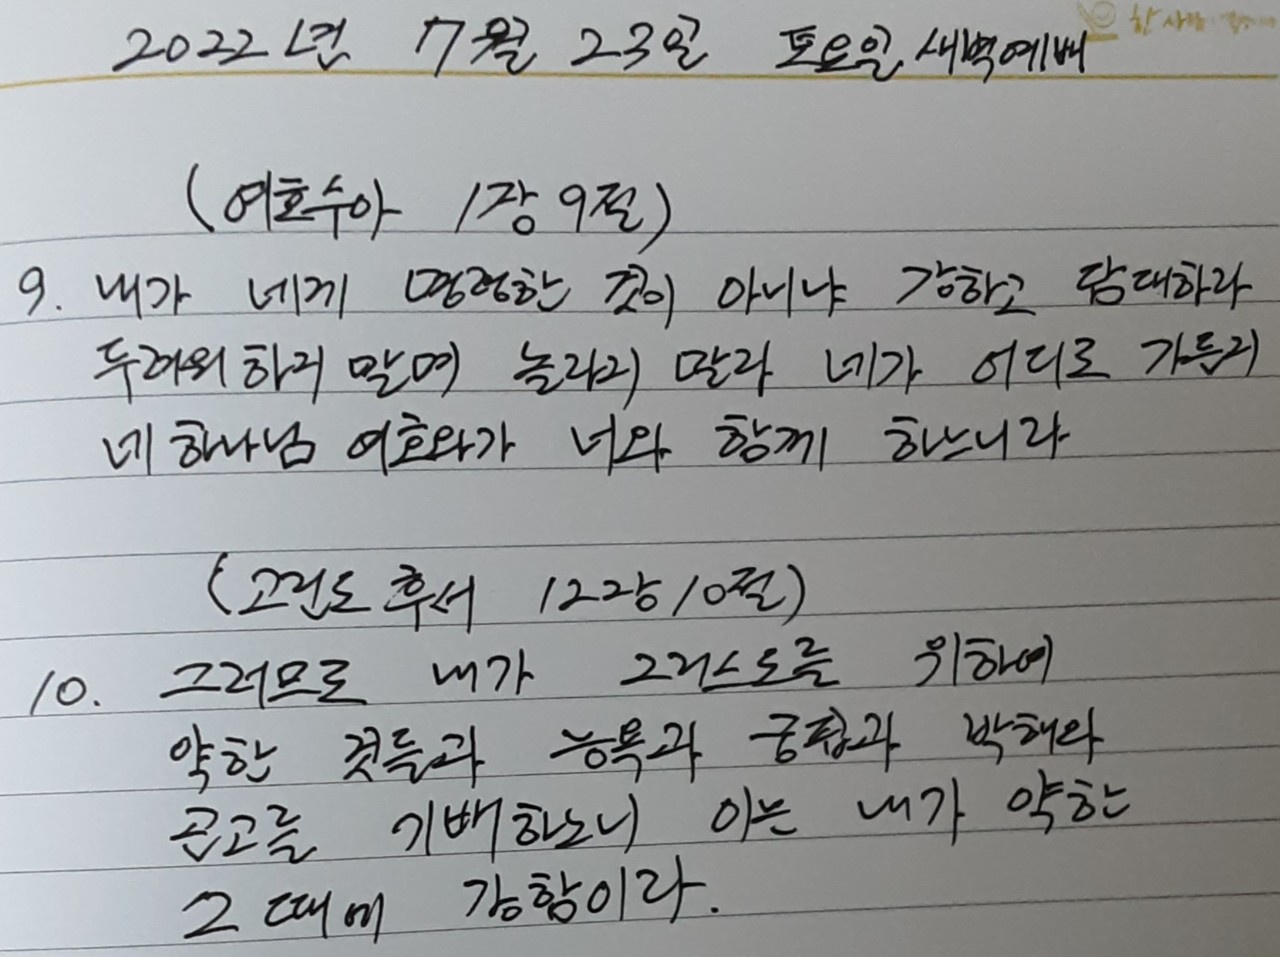 2022년 7월 23일 토요일 새벽예배
한 사람
(여호수아 1장 9절)
9. 내가 네게 명령한 것이 아니냐 강하고 담대하라
두려워하지 말며 놀라지 말라 네가 어디로 가든지
네 하나님 여호와가 너와 함께 하느니라
(고린도후서 12장 10절)
10. 그러므로 내가 그리스도를 위하여
약한 것들과 능욕과 궁핍과 박해와
곤고를 기뻐하노니 이는 내가 약한
그 때에 강함이라.